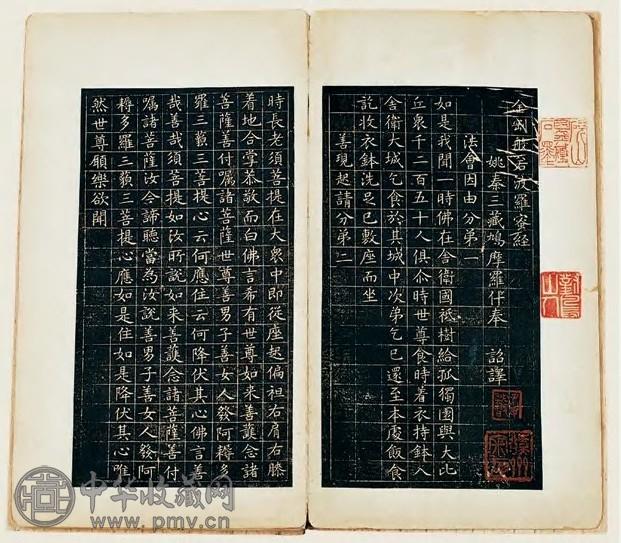 金剛般若波羅蜜經
姚秦三藏鳩摩羅什奉　詔譯
法會因由分第一
如是我聞一時佛在舍衛國祇樹給孤獨園與大比
丘衆千二百五十人俱尒時世尊食時着衣持鉢入
舍衛大城乞食於其城中次第乞已還至本處飯食
訖收衣鉢洗足已敷座而坐
善現起請分第二
時長老須菩提在大衆中即從座起偏袒右肩右膝
着地合掌恭敬而白佛言希有世尊如来善護念諸
菩薩善付囑諸菩薩世尊善男子善女人發阿耨多
羅三藐三菩提心云何應住云何降伏其心佛言善
哉善哉須菩提如汝所說如来善護念諸菩薩善付
囑諸菩薩汝今諦聽當為汝說善男子善女人發阿
耨多羅三藐三菩提心應如是住如是降伏其心唯
然世尊願樂欲聞
中华收藏网
www.pmv.cn